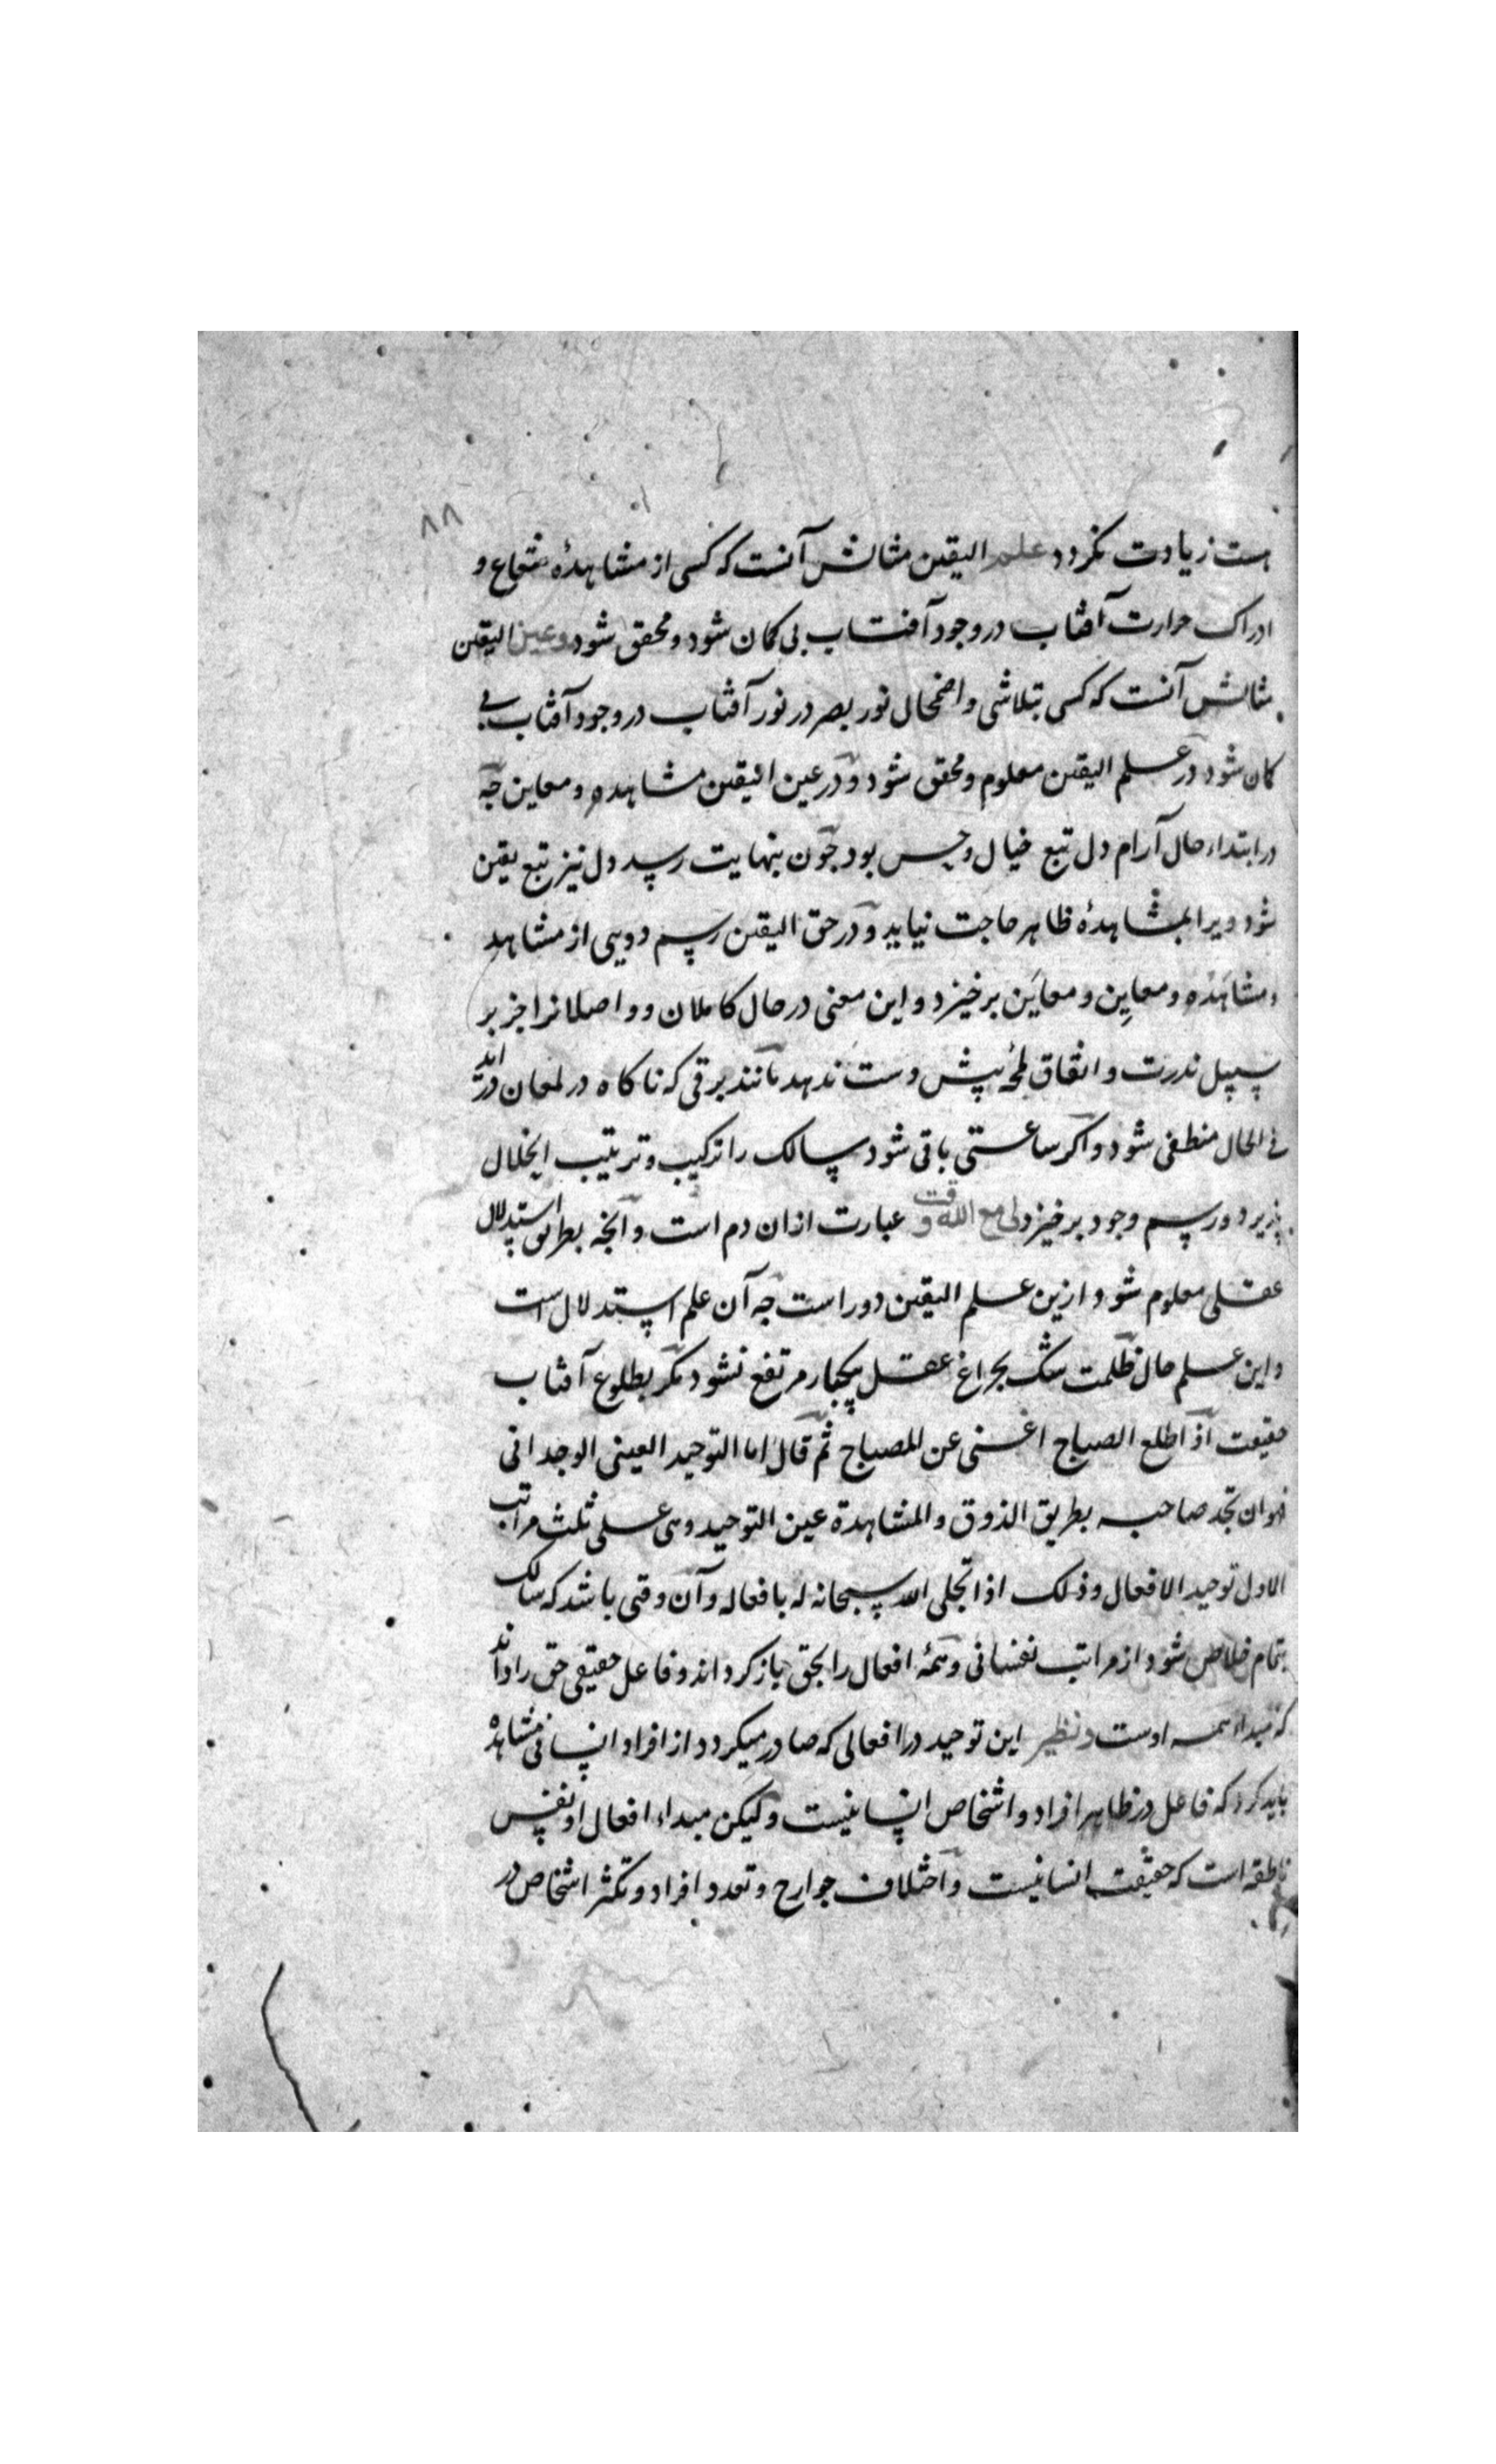 ۸۸
هست زیادت نکردد علم الیقین مثالش آنست که کسی از مشاهدهٔ شعاع و
ادراک حرارت آفتاب در وجود آفتاب بی کمان شود و محقق شود و عین الیقین
مثالش آنست که کسی بتلاشی و اضمحلال نور بصر در نور آفتاب در وجود آفتاب بی
کمان شود در علم الیقین معلوم و محقق شود و در عین الیقین مشاهده و معاین چه
در ابتداء حال آرام دل تبع خیال و حس بود چون بنهایت رسد دل نیز تبع یقین
شود ویرا بمشاهدهٔ ظاهر حاجت نیاید و در حق الیقین رسم دویی از مشاهد
و مشاهده و معاین و معاین برخیزد و این معنی در حال کاملان و واصلانرا جز بر
سبیل ندرت و اتفاق لمحهٔ بیش دست ندهد مانند برقی که ناکاه در لمعان درآید
فی الحال منطفی شود و اکر ساعتی باقی شود سالک را ترکیب و ترتیب انحلال
پذیرد و رسم وجود برخیزد لی مع الله وقت عبارت ازان دم است و آنچه بطریق استدلال
عقلی معلوم شود ازین علم الیقین دور است چه آن علم استدلال است
و این علم حال ظلمت شک بچراغ عقل یکبار مرتفع نشود مکر بطلوع آفتاب
حقیقت اذا طلع الصباح اغنی عن المصباح ثم قال اما التوحید العینی الوجدانی
فهو ان تجد صاحبه بطریق الذوق والمشاهدة عین التوحید وهی علی ثلث مراتب
الاول توحید الافعال وذلک اذا تجلی الله سبحانه له بافعاله و آن وقتی باشد که سالک
بتمام خلاص شود از مراتب نفسانی و همهٔ افعال را بحق باز کرداند و فاعل حقیقی حق را داند
که مبداء همه اوست و نظیر این توحید در افعالی که صادر میکردد از افراد انسانی مشاهده
باید کرد که فاعل در ظاهر افراد و اشخاص انسانیست و لیکن مبداء افعال او نفس
ناطقه است که حقیقت انسانیست و اختلاف جوارح و تعدد افراد و تکثر اشخاص در